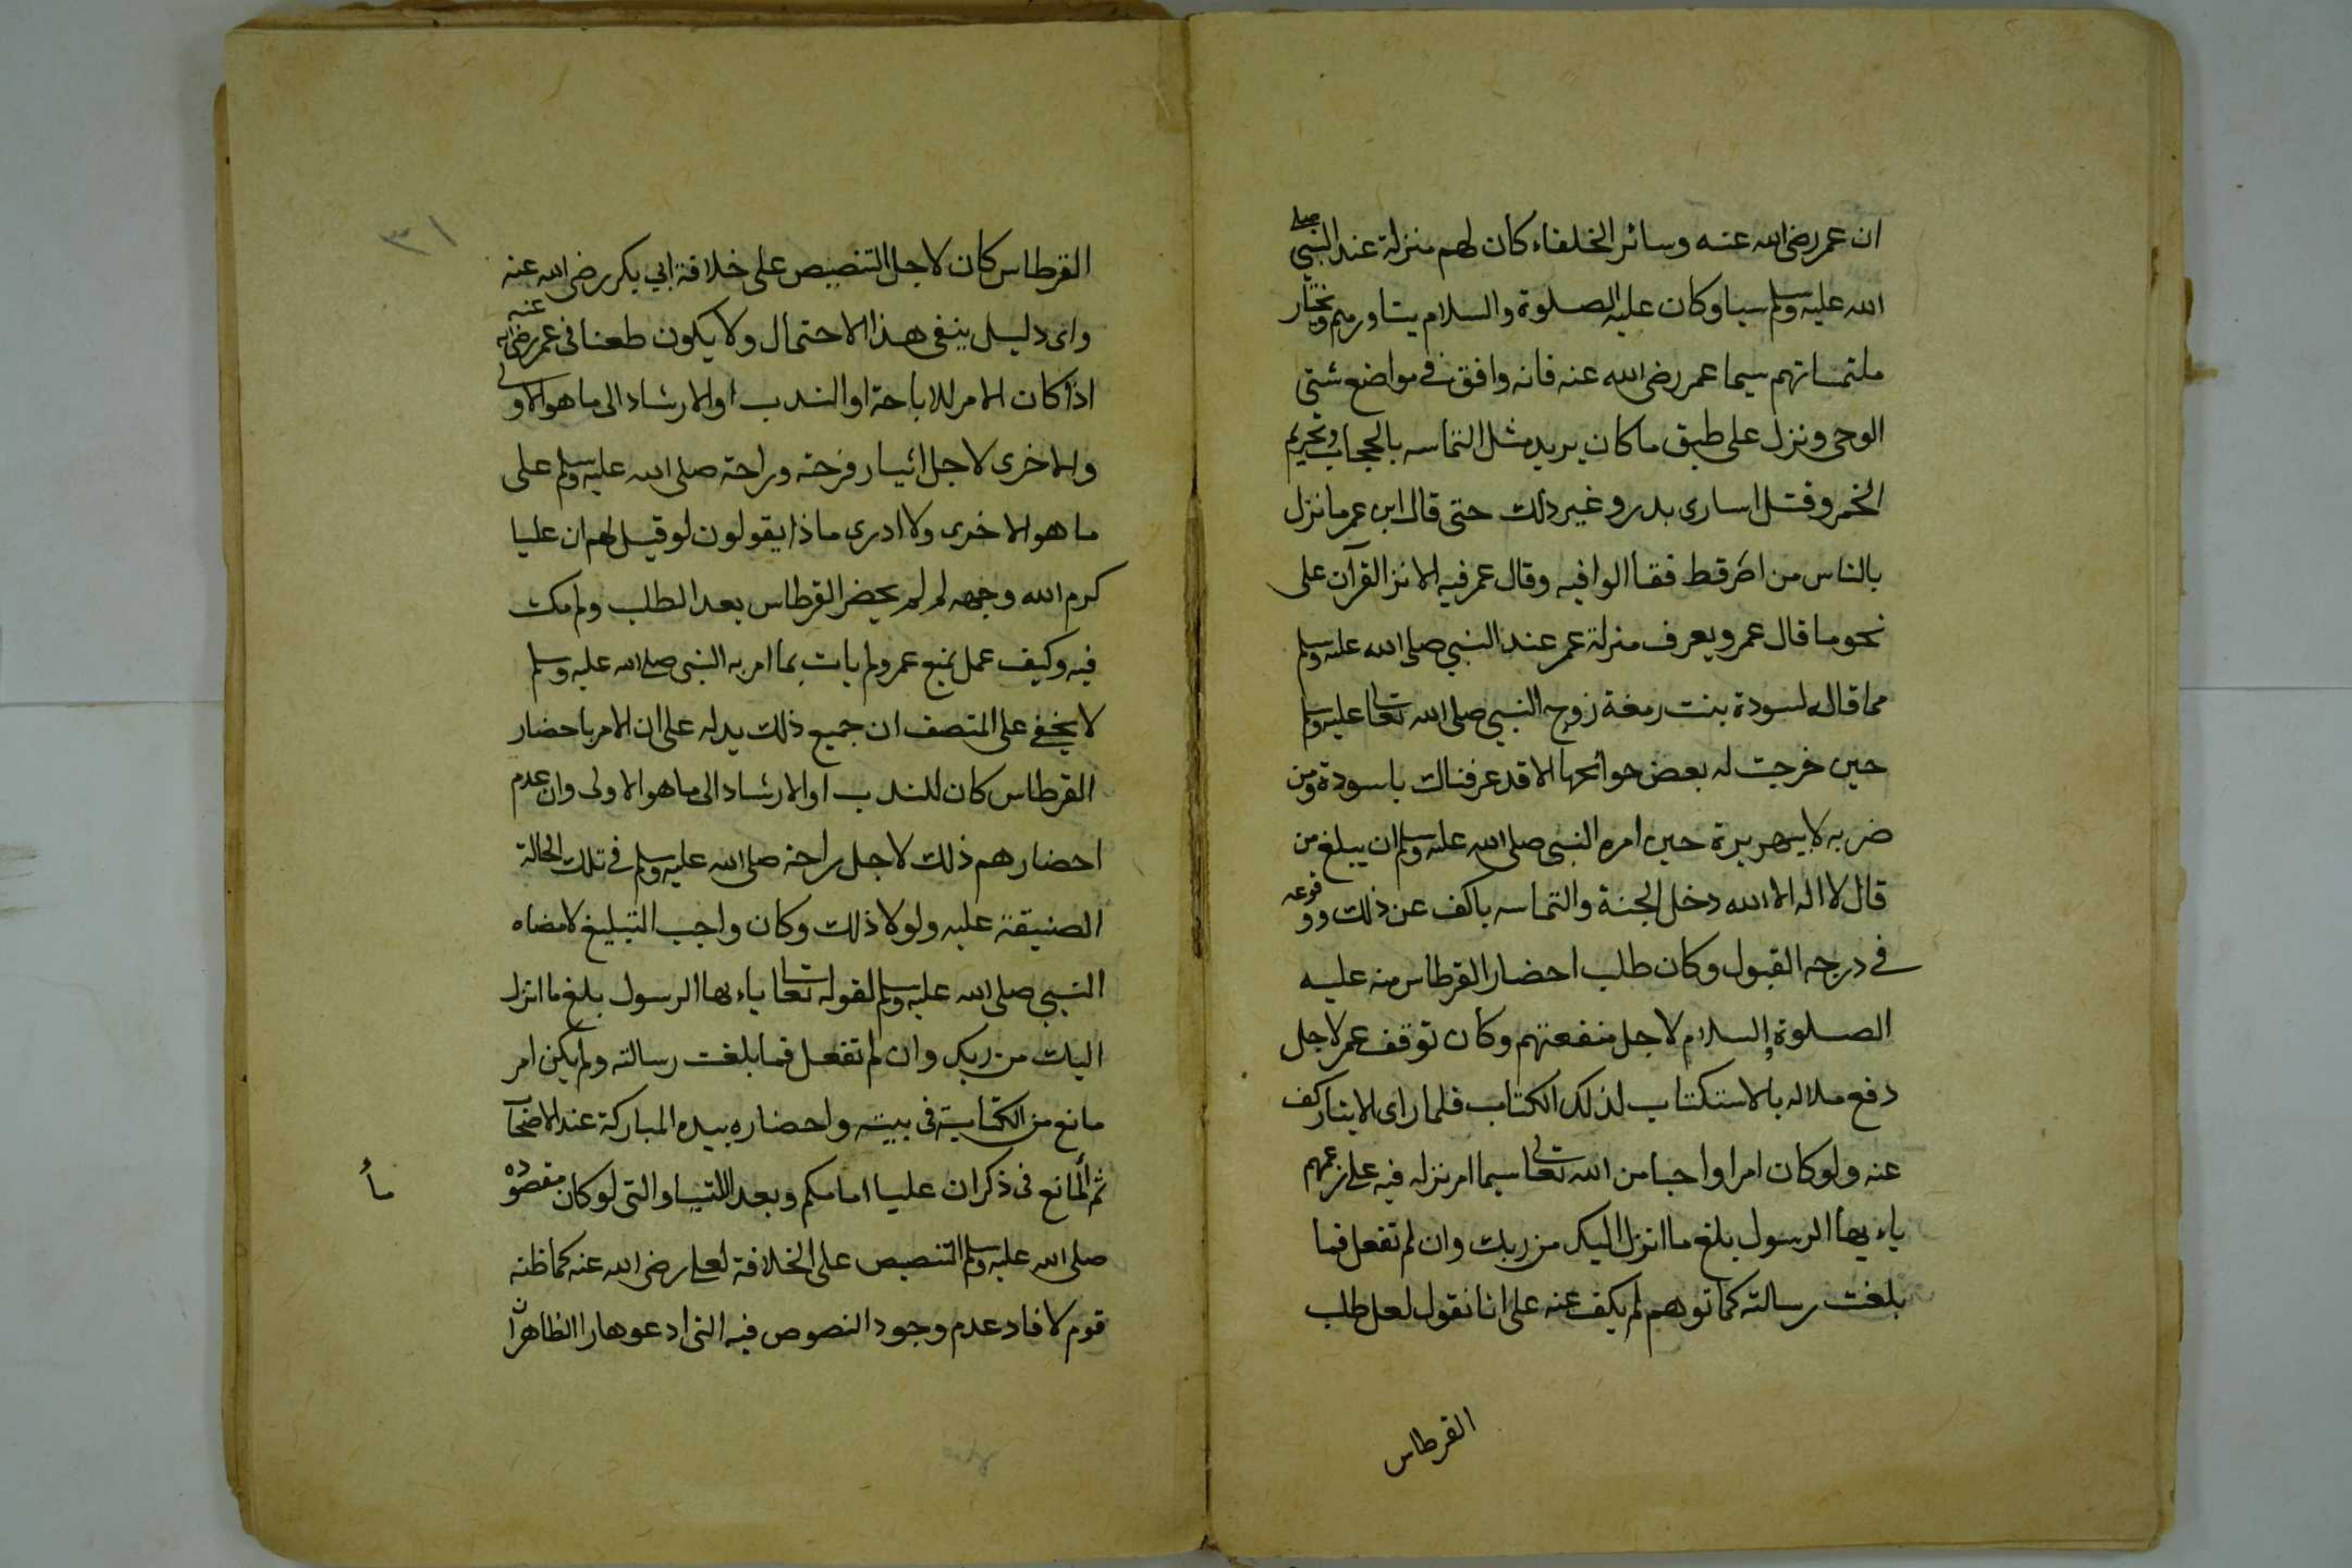 ان عمر رضى الله عنه وسائر الخلفاء كان لهم منزلة عند النبي صلى
الله عليه وسلم سيما وكان عليه الصلوة والسلام يشاورهم ويختار
ملتمساتهم سيما عمر رضى الله عنه فانه وافق في مواضع شتى
الوحى ونزل على طبق ما كان يريد مثل التماسه بالحجاب وتحريم
الخمر وقتل اسارى بدر وغير ذلك حتى قال ابن عمر ما نزل
بالناس من امر قط فقالوا فيه وقال عمر فيه الا نزل القرآن على
نحو ما قال عمر ويعرف منزلة عمر عند النبي صلى الله عليه وسلم
مما قاله لسودة بنت رمغة زوجه النبي صلى الله تعالى عليه وسلم
حين خرجت له بعض حوائجها الا قد عرفناك ياسودة ومن
ضربه لابيهريرة حين امره النبي صلى الله عليه وسلم ان يبلغ من
قال لا اله الا الله دخل الجنة والتماسه باكف عن ذلك ووقوعه
في درجه القبول وكان طلب احضار القرطاس منه عليه
الصلوة والسلام لاجل منفعتهم وكان توقف عمر لاجل
دفع ملاله بالاستكتاب لذلك الكتاب فلما راى الايثار كف
عنه ولو كان امرا واجبا من الله تعالى سيما امر نزله فيه على زعمهم
ياء يها الرسول بلغ ما انزل اليك من ربك وان لم تفعل فما
بلغت رسالته كما توهم لم يكف عنه على انا نقول لعل طلب
القرطاس
٣١
القرطاس كان لاجل التنصيص على خلافة ابي بكر رضى الله عنه
واى دليل ينفى هذا الاحتمال ولا يكون طعنا فى عمر رضى الله عنه
اذا كان الامر للاباحة او الندب او الارشاد الى ما هو الاولى
والاخرى لاجل ائيسار فرحته وراحته صلى الله عليه وسلم على
ما هو الاخرى ولا ادرى ماذا يقولون لو قيل لهم ان عليا
كرم الله وجهه لم لم يحضر القرطاس بعد الطلب ولم مكث
فيه وكيف عمل بمنع عمر ولم يات بما امر به النبي صلى الله عليه وسلم
لا يخفى على المنصف ان جميع ذلك يدله على ان الامر باحضار
القرطاس كان للندب او الارشاد الى ما هو الاولى وان عدم
احضارهم ذلك لاجل راحته صلى الله عليه وسلم في تلك الحالة
الضيقة عليه ولولا ذلك وكان واجب التبليغ لامضاه
النبي صلى الله عليه وسلم لقوله تعالى ياء يها الرسول بلغ ما انزل
اليك من ربك وان لم تفعل فما بلغت رسالته ولم يكن امر
مانع من الكتابة فى بيته واحضاره بيده المباركة عند الاصحاب
ثم المانع فى ذكر ان عليا امامكم وبعد اللتيا والتى لو كان مقصوده
صلى الله عليه وسلم التنصيص على الخلافة لعلى رضى الله عنه كما ظنه
قوم لافاد عدم وجود النصوص فيه التى ادعوها را الظاهر ان